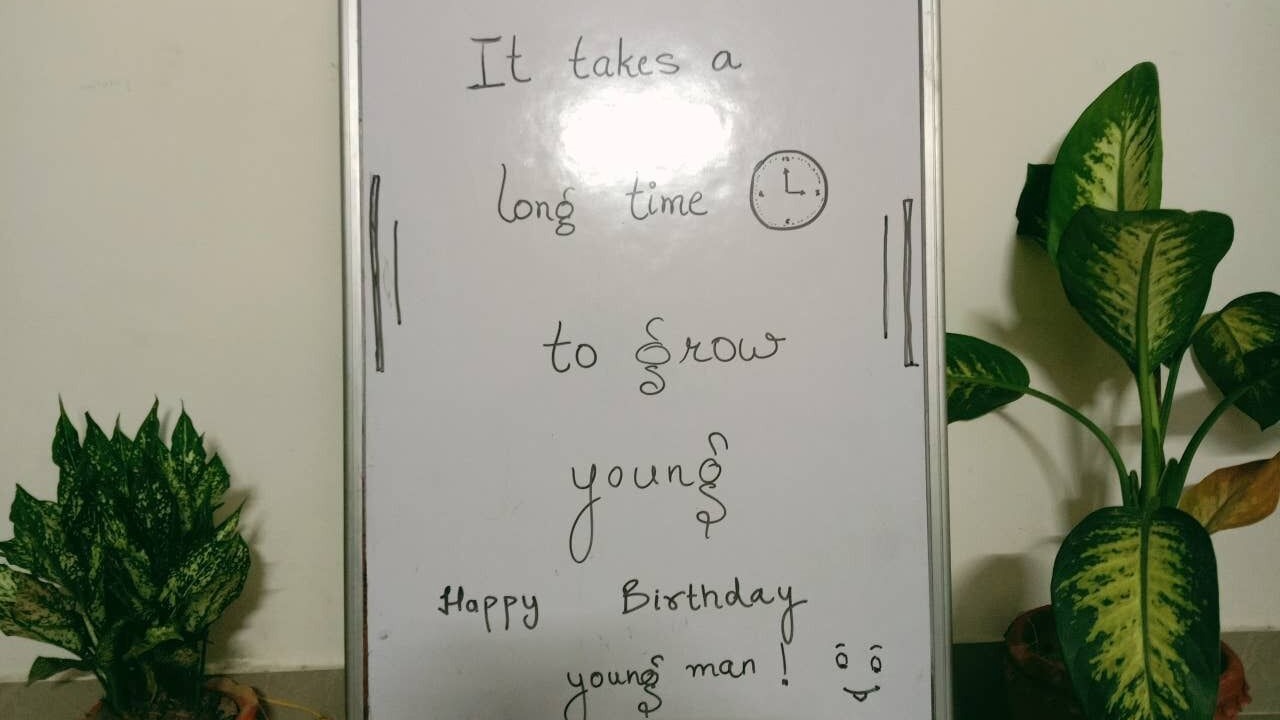 It takes a
long time
to grow
young
Happy Birthday
young man !